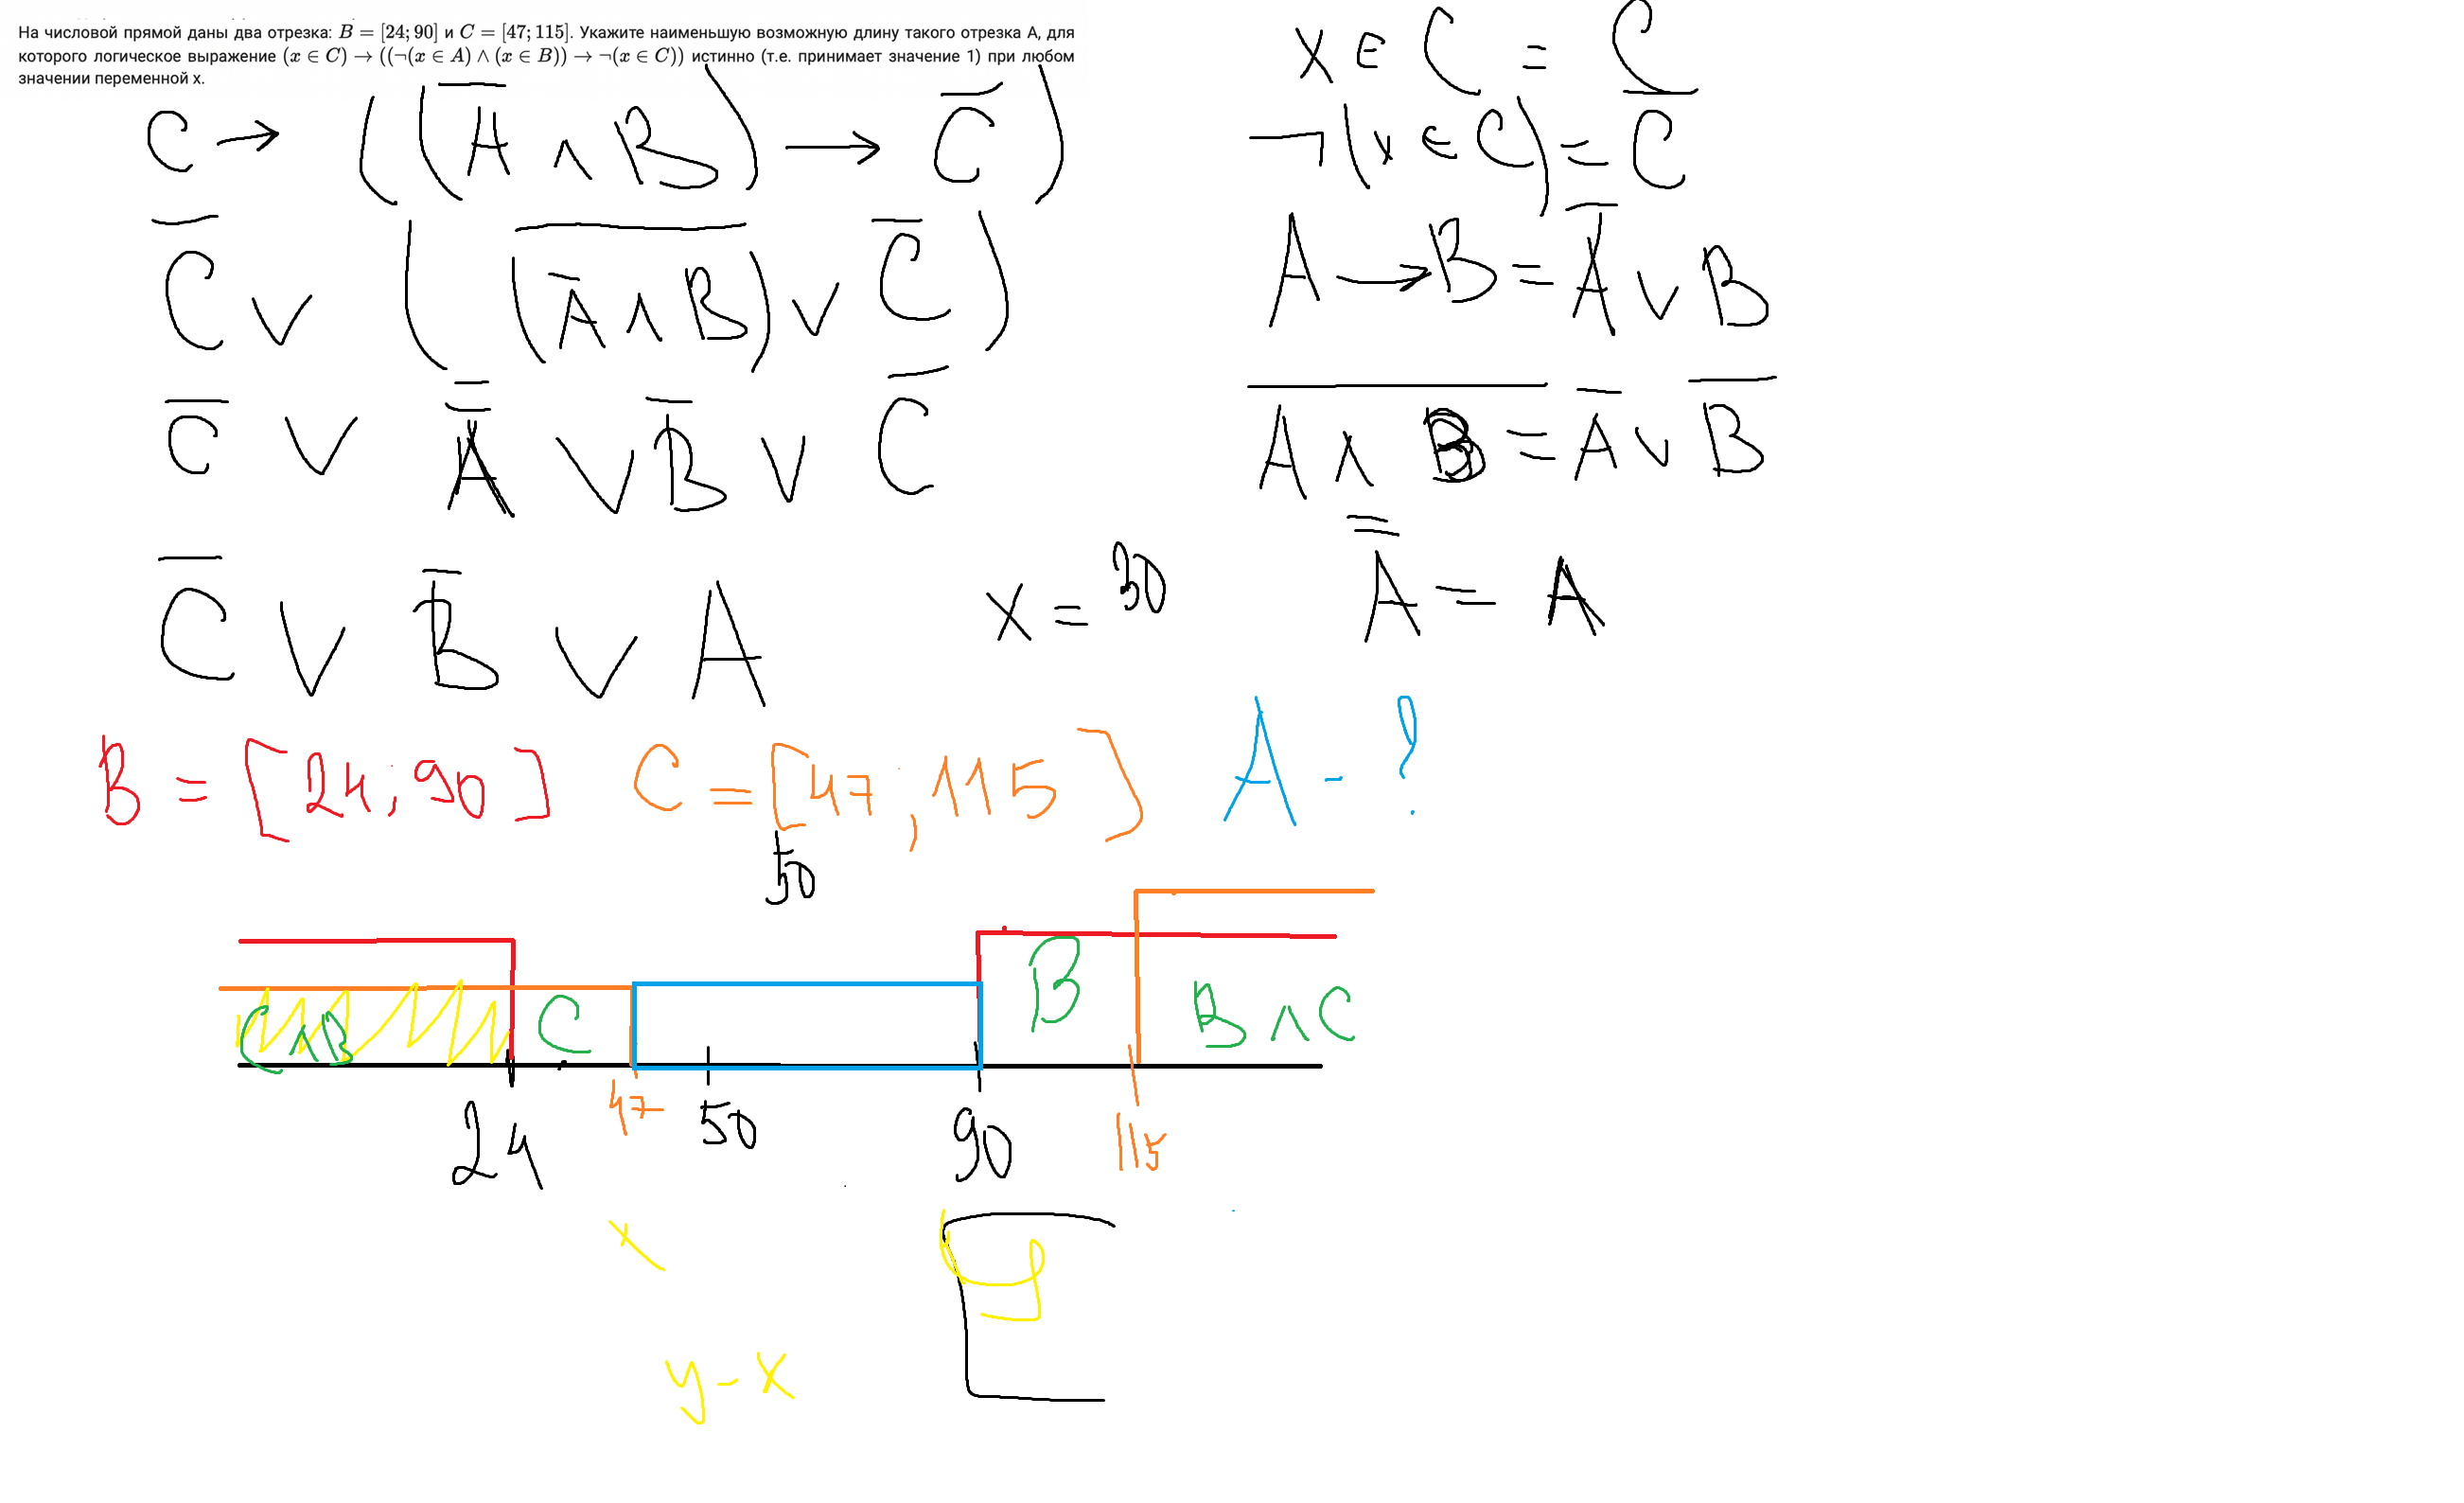 На числовой прямой даны два отрезка: B = [24; 90] и C = [47; 115]. Укажите наименьшую возможную длину такого отрезка А, для
которого логическое выражение (x ∈ C) → ((¬(x ∈ A) ∧ (x ∈ B)) → ¬(x ∈ C)) истинно (т.е. принимает значение 1) при любом
значении переменной х.
x ∈ C = C
C → ((A̅ ∧ B) → C̅)
¬(x ∈ C) = C̅
C̅ ∨ (¬(A̅ ∧ B) ∨ C̅)
A → B = A̅ ∨ B
C̅ ∨ A̿ ∨ B̅ ∨ C̅
¬(A ∧ B) = A̅ ∨ B̅
C̅ ∨ B̅ ∨ A
x = 30
A̿ = A
B = [24; 90]
C = [47; 115]
A - ?
50
C ∧ B
C
B
B ∧ C
24
47
50
90
115
x
y
y - x